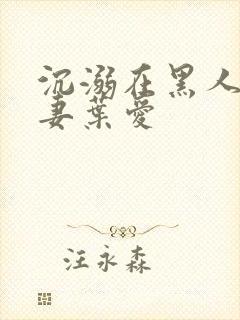 沉溺在黑人
妻葉愛
汪永森